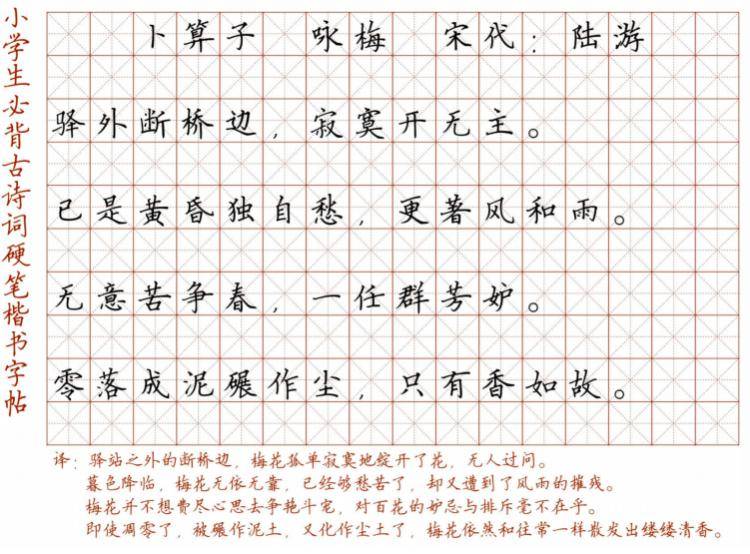 小学生必背古诗词硬笔楷书字帖
卜算子 咏梅 宋代：陆游
驿外断桥边，寂寞开无主。
已是黄昏独自愁，更著风和雨。
无意苦争春，一任群芳妒。
零落成泥碾作尘，只有香如故。
译：驿站之外的断桥边，梅花孤单寂寞地绽开了花，无人过问。
暮色降临，梅花无依无靠，已经够愁苦了，却又遭到了风雨的摧残。
梅花并不想费尽心思去争艳斗宠，对百花的妒忌与排斥毫不在乎。
即使凋零了，被碾作泥土，又化作尘土了，梅花依然和往常一样散发出缕缕清香。